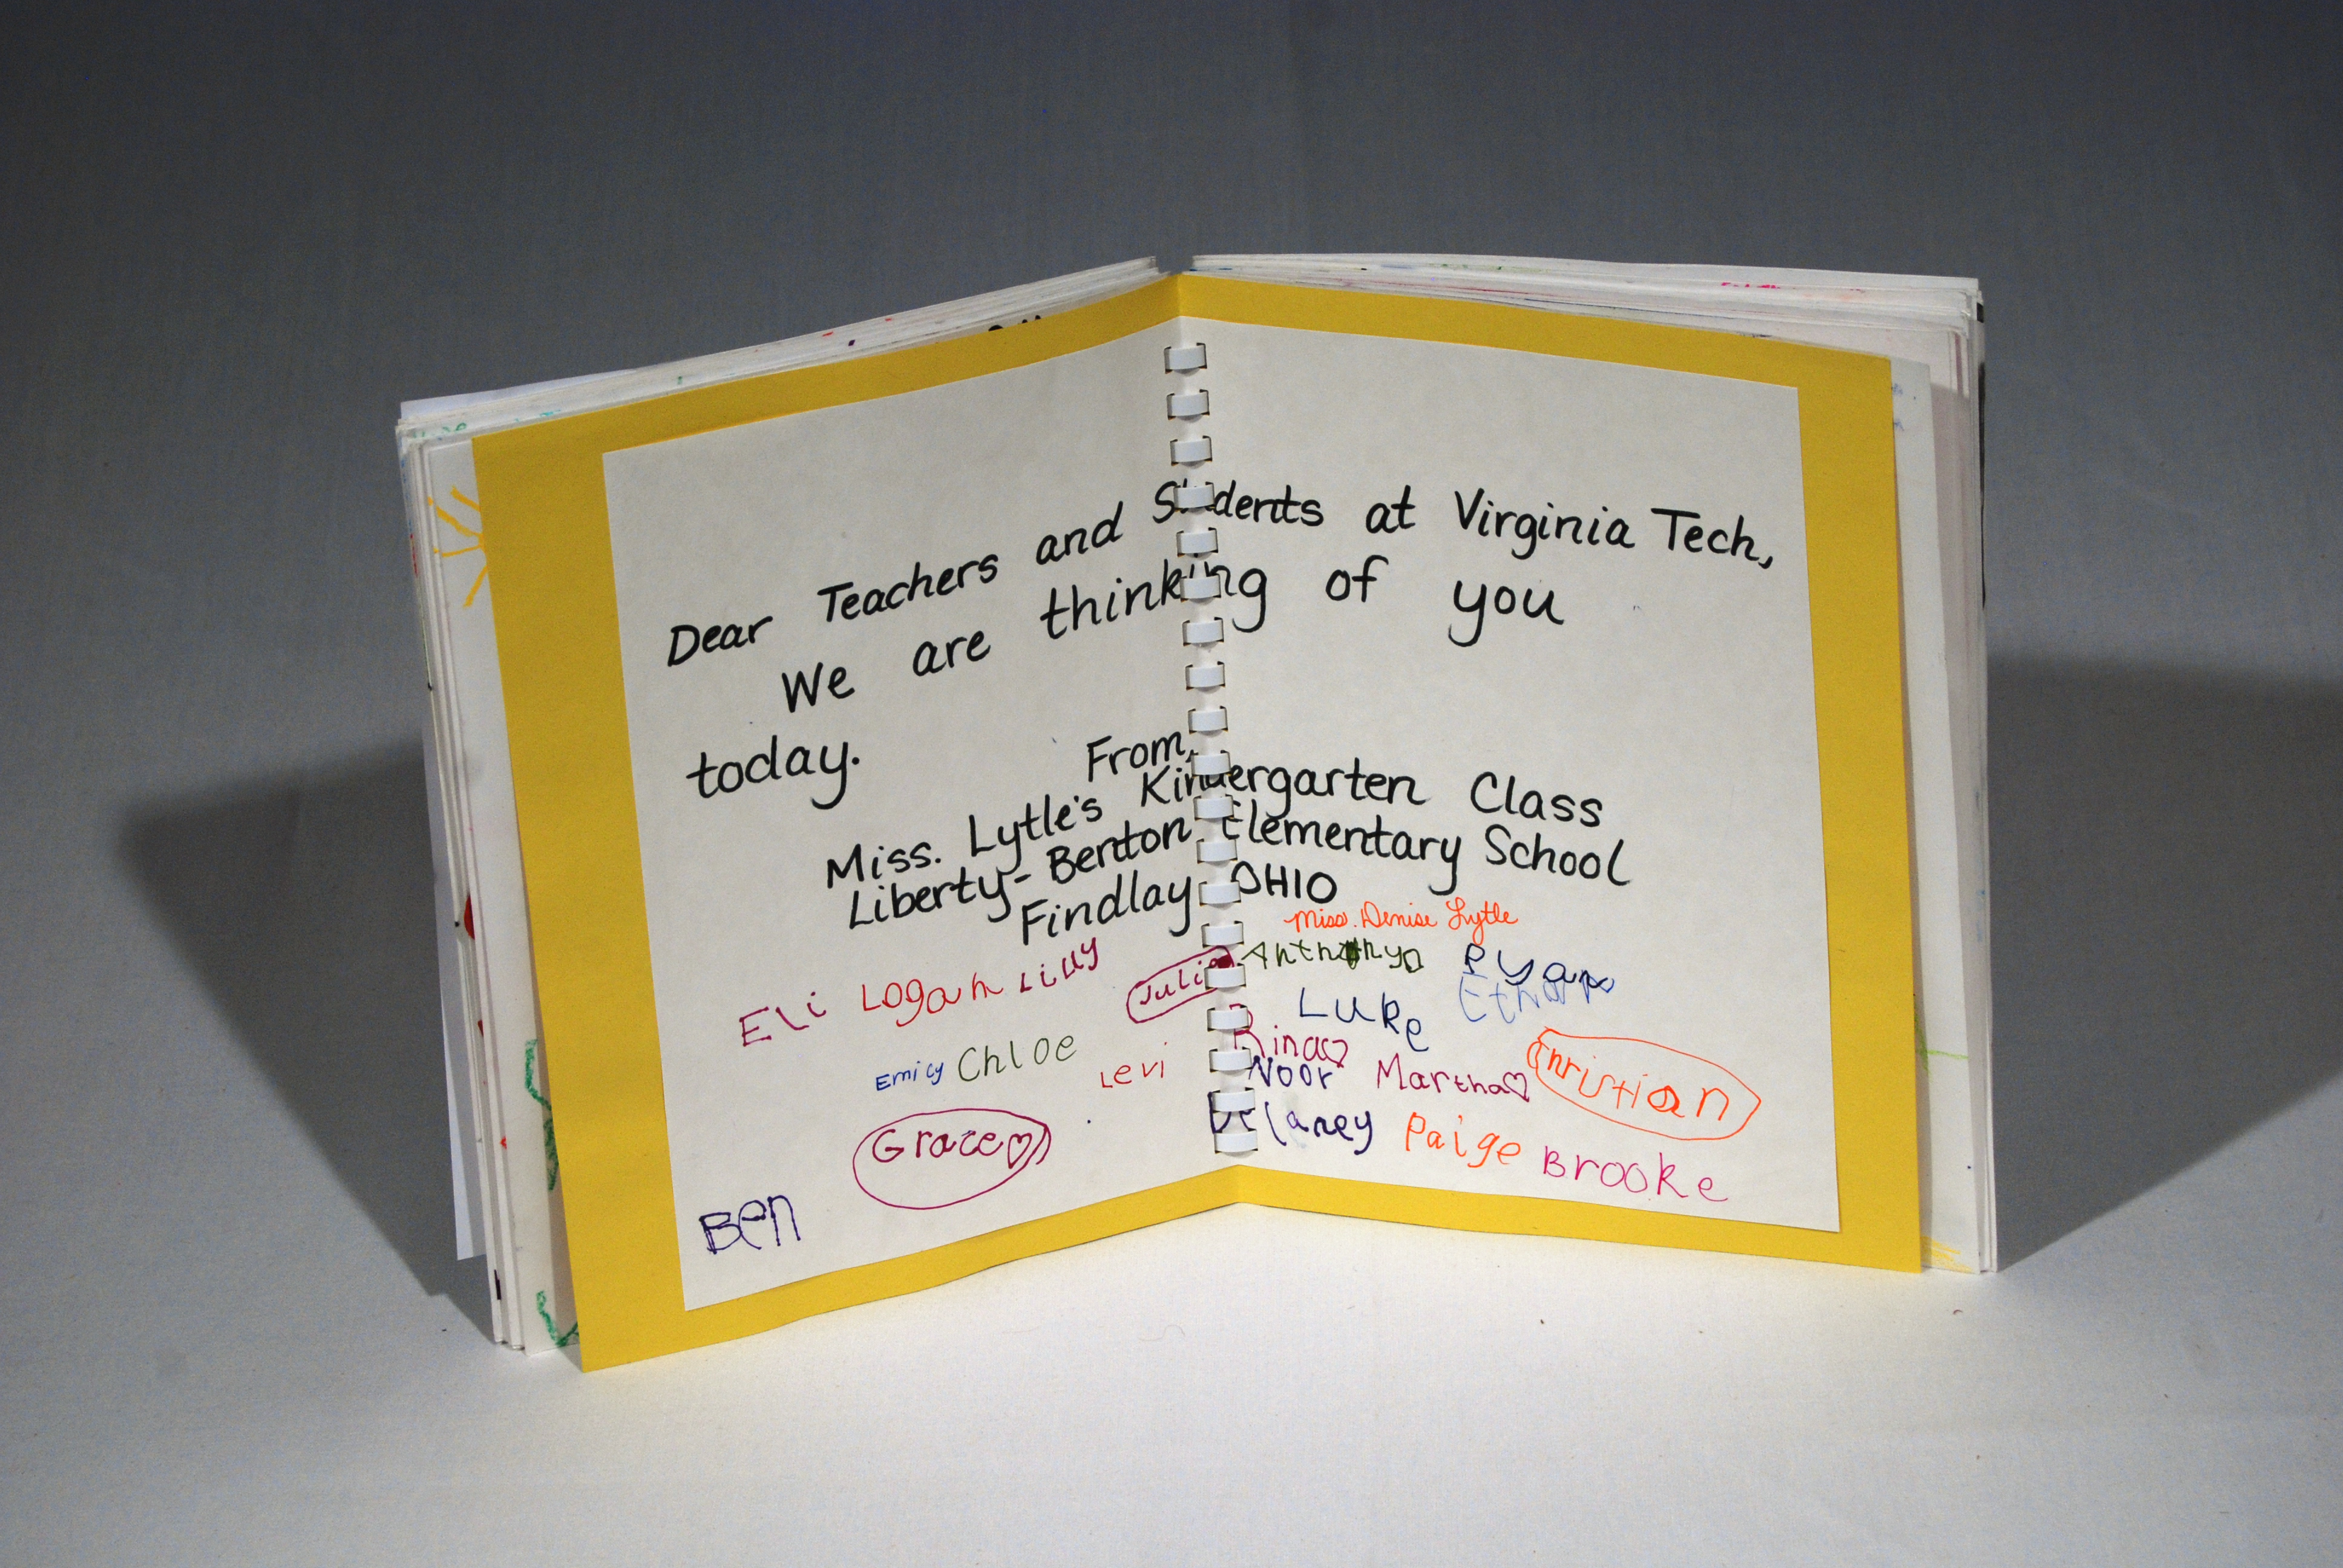 Dear Teachers and Students at Virginia Tech,
We are thinking of you
today.
From,
Miss. Lytle's Kindergarten Class
Liberty-Benton Elementary School
Findlay, OHIO
Miss. Denise Lytle
Eli Logan Lilly Julia Anthony Ryan
Luke Ethan
Emily Chloe Levi Rina
Noor Martha Christian
Grace Delaney Paige Brooke
Ben